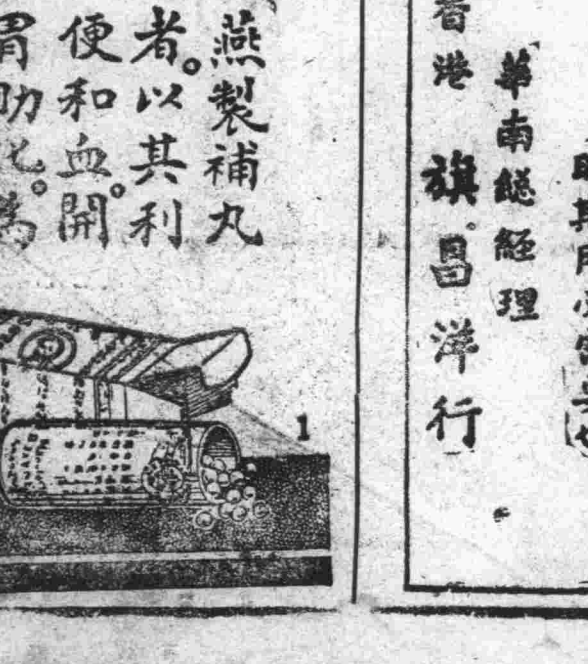 華南總經理
香港 旗昌洋行
燕製補丸
者。以其利
便和血。開
胃助化。為
1